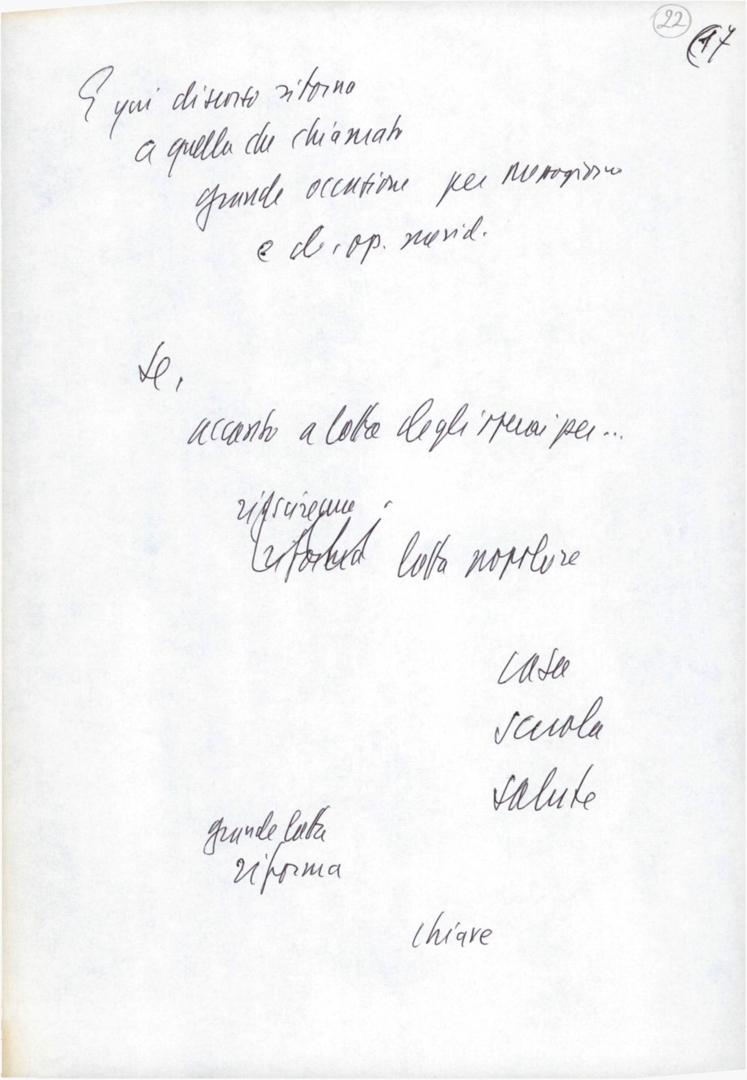 22
17
E qui discorso ritorno
a quella che chiamato
grande occasione per Mezzogiorno
e cl. op. merid.
Se,
accanto a lotta degli operai per...
riusciremo
lotta popolare
casa
scuola
salute
grande lotta
riforma
chiave